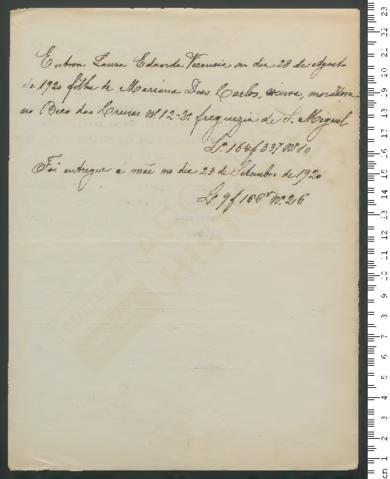 Entrou Laura Eduarda Vicencia em dia 28 de Agosto
de 1920 filha de Mariana Dias Carlos, viuva, moradora
no Beco das Cruzes nº 12-3º freguezia de S. Miguel
Lº 164 f 337 nº 10
Foi entregue a mãe no dia 23 de Setembro de 1920
Lº 9 f 166v nº 26